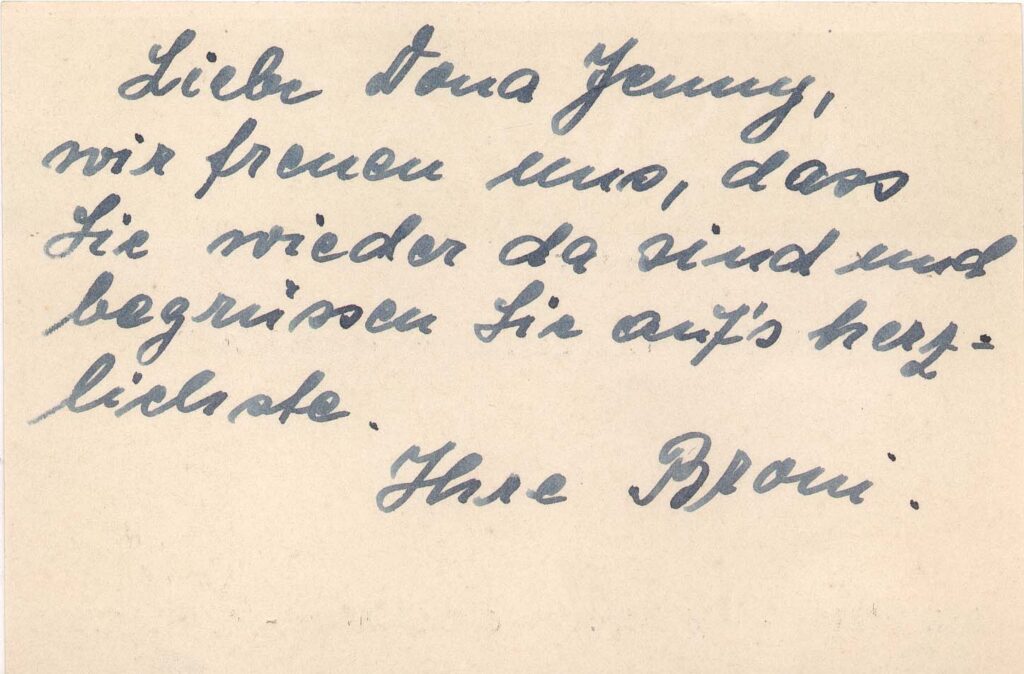 Liebe Dona Jenny,
wir freuen uns, dass
Sie wieder da sind und
begrüssen Sie auf's herz=
lichste.
Ihre Broni.